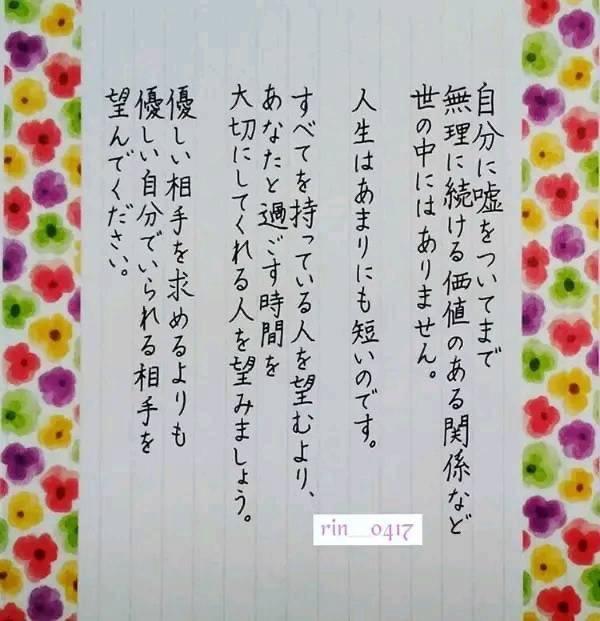 自分に嘘をついてまで
無理に続ける価値のある関係など
世の中にはありません。
人生はあまりにも短いのです。
すべてを持っている人を望むより、
あなたと過ごす時間を
大切にしてくれる人を望みましょう。
優しい相手を求めるよりも
優しい自分でいられる相手を
望んでください。
rin__0417